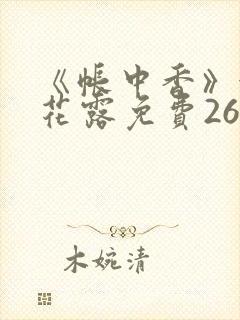 《帐中香》
花露免费26
木婉清